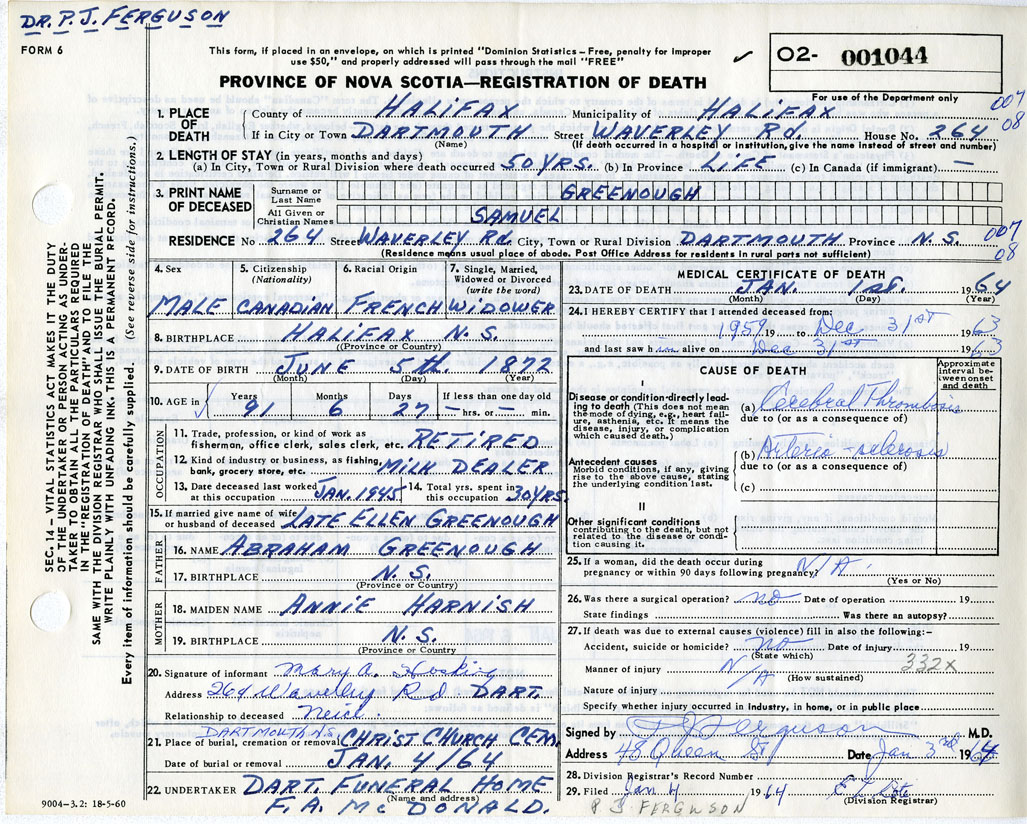 DR. P. J. FERGUSON
FORM 6
This form, if placed in an envelope, on which is printed "Dominion Statistics – Free, penalty for improper
use $50," and properly addressed will pass through the mail "FREE"
✓
O2- 001044
For use of the Department only
PROVINCE OF NOVA SCOTIA—REGISTRATION OF DEATH
007
08
1. PLACE OF DEATH
County of HALIFAX Municipality of HALIFAX
If in City or Town DARTMOUTH Street WAVERLEY Rd House No. 264
(Name) (If death occurred in a hospital or institution, give the name instead of street and number)
2. LENGTH OF STAY (in years, months and days)
(a) In City, Town or Rural Division where death occurred 50 YRS. (b) In Province LIFE (c) In Canada (if immigrant) —
3. PRINT NAME OF DECEASED
Surname or Last Name GREENOUGH
All Given or Christian Names SAMUEL
RESIDENCE No 264 Street WAVERLEY Rd. City, Town or Rural Division DARTMOUTH Province N. S.
007
08
(Residence means usual place of abode. Post Office Address for residents in rural parts not sufficient)
4. Sex
MALE
5. Citizenship
(Nationality)
CANADIAN
6. Racial Origin
FRENCH
7. Single, Married,
Widowed or Divorced
(write the word)
WIDOWER
8. BIRTHPLACE HALIFAX N. S.
(Province or Country)
9. DATE OF BIRTH JUNE 5th. 1872
(Month) (Day) (Year)
10. AGE in ✓
Years Months Days If less than one day old
91 6 27 — hrs. or — min.
OCCUPATION
11. Trade, profession, or kind of work as
fisherman, office clerk, sales clerk, etc. RETIRED
12. Kind of industry or business, as fishing,
bank, grocery store, etc. MILK DEALER
13. Date deceased last worked
at this occupation JAN. 1945
14. Total yrs. spent in
this occupation 30 YRS.
15. If married give name of wife
or husband of deceased LATE ELLEN GREENOUGH
FATHER
16. NAME ABRAHAM GREENOUGH
17. BIRTHPLACE N. S.
(Province or Country)
MOTHER
18. MAIDEN NAME ANNIE HARNISH
19. BIRTHPLACE N. S.
(Province or Country)
20. Signature of informant Mary A. Hosking
Address 264 Waverley Rd DART.
Relationship to deceased Neice.
DARTMOUTH N.S.
21. Place of burial, cremation or removal CHRIST CHURCH CEM.
Date of burial or removal JAN. 4/64
22. UNDERTAKER DART. FUNERAL HOME
(Name and address)
F. A. McDONALD.
9004-3.2: 18-5-60
MEDICAL CERTIFICATE OF DEATH
23. DATE OF DEATH JAN. 1st. 1964
(Month) (Day) (Year)
24. I HEREBY CERTIFY that I attended deceased from:
1959 19 to Dec 31ST 1963
and last saw him alive on Dec 31ST 1963
CAUSE OF DEATH
Approximate
interval be-
tween onset
and death
I
Disease or condition directly lead-
ing to death (This does not mean
the mode of dying, e.g., heart fail-
ure, asthenia, etc. It means the
disease, injury, or complication
which caused death.)
(a) Cerebral Thrombosis
due to (or as a consequence of)
Antecedent causes
Morbid conditions, if any, giving
rise to the above cause, stating
the underlying condition last.
(b) Arterio-sclerosis
due to (or as a consequence of)
(c)
II
Other significant conditions
contributing to the death, but not
related to the disease or condi-
tion causing it.
25. If a woman, did the death occur during
pregnancy or within 90 days following pregnancy? N/A.
(Yes or No)
26. Was there a surgical operation? no Date of operation 19
State findings Was there an autopsy?
27. If death was due to external causes (violence) fill in also the following:–
Accident, suicide or homicide? no Date of injury 19
(State which) 332x
Manner of injury N/A
(How sustained)
Nature of injury
Specify whether injury occurred in industry, in home, or in public place
Signed by P J Ferguson M.D.
Address 48 Queen St Date Jan 3rd 1964
28. Division Registrar's Record Number
29. Filed Jan 4 1964
(Division Registrar)
P J FERGUSON
SEC. 14 – VITAL STATISTICS ACT MAKES IT THE DUTY
OF THE UNDERTAKER OR PERSON ACTING AS UNDER-
TAKER TO OBTAIN ALL THE PARTICULARS REQUIRED
IN THE "REGISTRATION OF DEATH" AND TO FILE THE
SAME WITH THE DIVISION REGISTRAR WHO SHALL ISSUE THE BURIAL PERMIT.
WRITE PLAINLY WITH UNFADING INK. THIS IS A PERMANENT RECORD.
Every item of information should be carefully supplied. (See reverse side for instructions.)